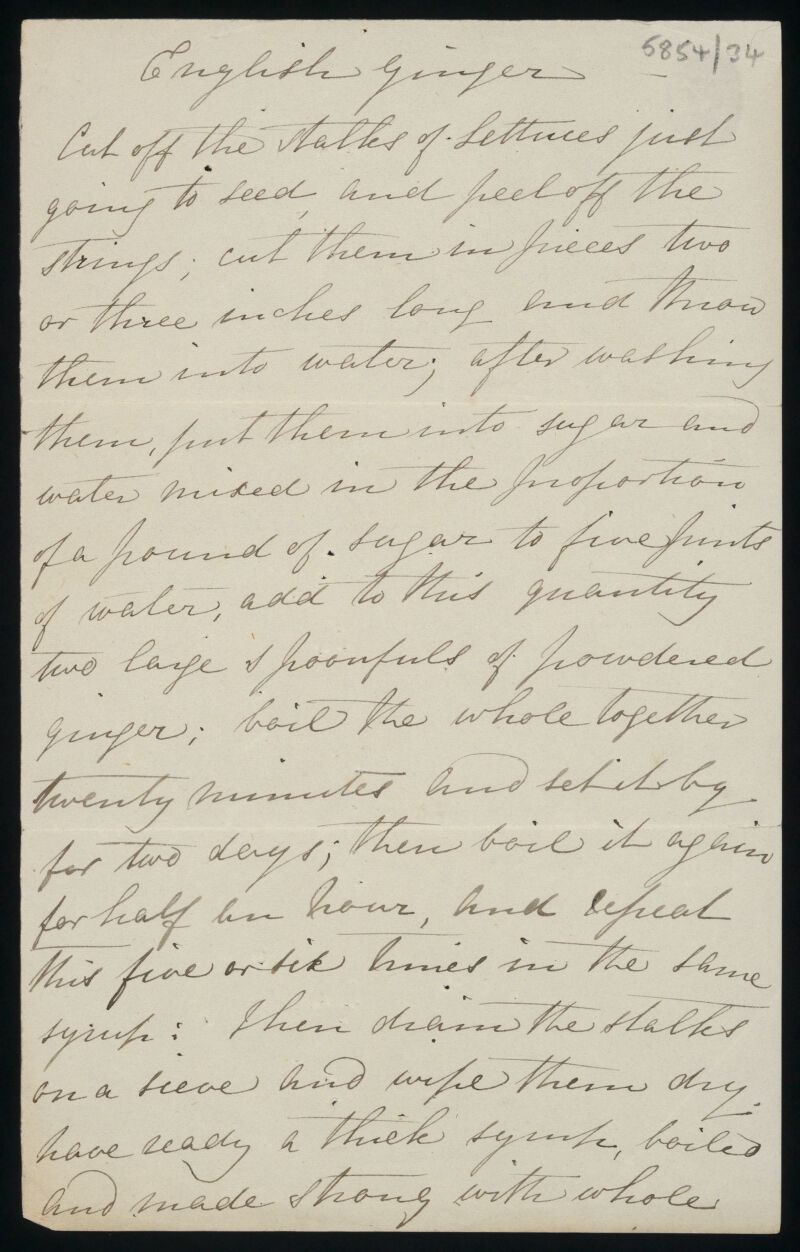 5854/34
English Ginger
Cut off the stalks of lettuces just
going to seed, and peel off the
strings; cut them in pieces two
or three inches long and throw
them into water; after washing
them, put them into sugar and
water mixed in the proportion
of a pound of sugar to five pints
of water, add to this quantity
two large spoonfuls of powdered
ginger; boil the whole together
twenty minutes and set it by
for two days; then boil it again
for half an hour, and repeat
this five or six times in the same
syrup: Then drain the stalks
on a sieve and wipe them dry.
have ready a thick syrup, boiled
and made strong with whole